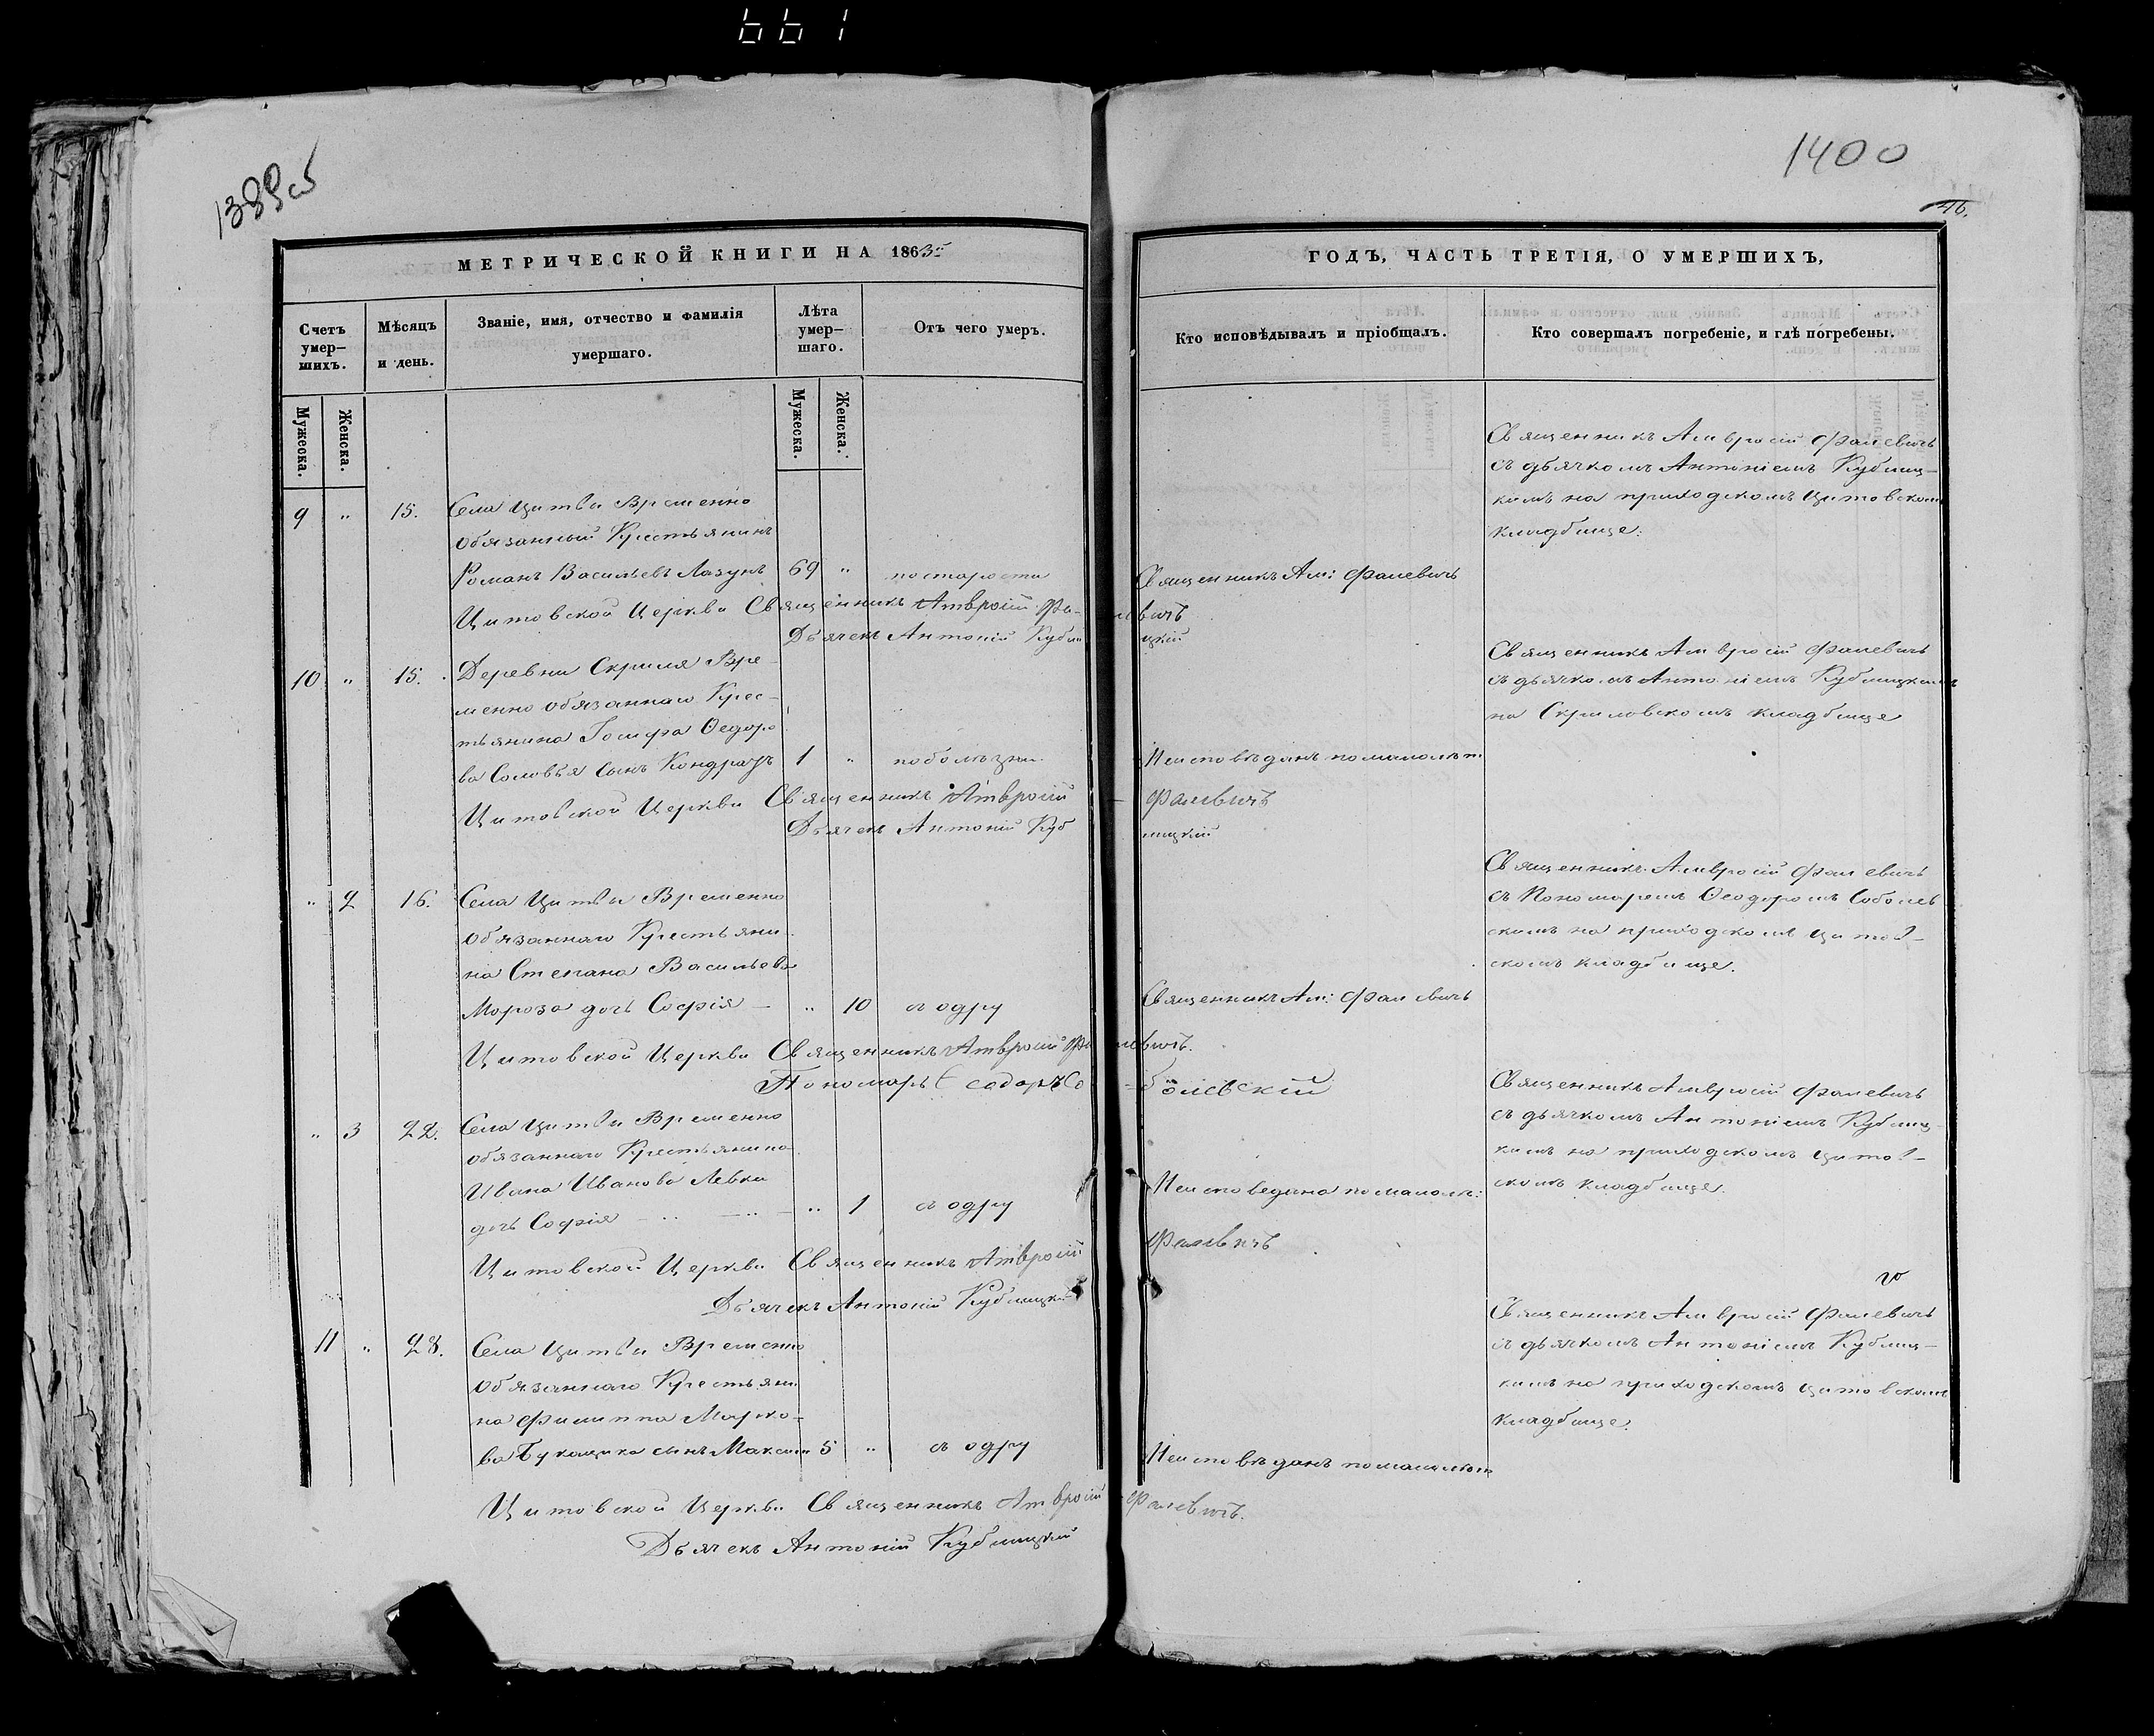 661
1389 об
1400
46.
МЕТРИЧЕСКОЙ КНИГИ НА 1863й
ГОДЪ, ЧАСТЬ ТРЕТІЯ, О УМЕРШИХЪ,
Счетъ умер-шихъ.
Мѣсяцъ и день.
Званіе, имя, отчество и фамилія умершаго.
Лѣта умер-шаго.
Отъ чего умеръ.
Кто исповѣдывалъ и пріобщалъ.
Кто совершалъ погребеніе, и гдѣ погребены.
Мужеска.
Женска.
Мужеска.
Женска.
9 " 15. Села Цитвы Временно
обязанный Крестьянинъ
Романъ Васильевъ Лазукъ 69 " по старости
Священникъ Ам: Фалевичъ
Священникъ Амвросій Фалевичъ
съ дьячкомъ Антоніемъ Кублиц-
кимъ на приходскомъ Цитовскомъ
кладбище.
Цитовской Церкви Священникъ Амвросій Фалевичъ
Дьячекъ Антоній Кублицкій
10 " 15. Деревни Скриля Вре-
менно обязаннаго Крес-
тьянина Іосифа Ѳеодоро
ва Соловья сынъ Кондратъ 1 " по болѣзни
Неисповѣданъ по малолѣт.
Священникъ Амвросій Фалевичъ
съ дьячкомъ Антоніемъ Кублицкимъ
на Скриловскомъ кладбище
Цитовской Церкви Священникъ Амвросій Фалевичъ
Дьячекъ Антоній Кублицкій
" 2 16. Села Цитвы Временно
обязаннаго Крестьяни-
на Степана Васильева
Мороза дочь Софія — " 10 съ одру
Священникъ Ам: Фалевичъ
Священникъ Амвросій Фалевичъ
съ Пономаремъ Ѳеодоромъ Соболев
скимъ на приходскомъ Цитов-
скомъ кладбище.
Цитовской Церкви Священникъ Амвросій Фалевичъ.
Пономарь Ѳеодоръ Соболевскій
" 3 22. Села Цитвы Временно
обязаннаго Крестьянина
Ивана Иванова Левка
дочь Софія — " — " — " 1 съ одру
Неисповедана по малол:
Священникъ Амвросій Фалевичъ
съ дьячкомъ Антоніемъ Кублиц-
кимъ на приходскомъ Цитов-
скомъ кладбище.
Цитовской Церкви Священникъ Амвросій Фалевичъ
Дьячекъ Антоній Кублицкій
11 " 28. Села Цитвы Временно
обязаннаго Крестьяни
на Филиппа Марко-
ва Букащика сынъ Максим 5 " съ одру
Неисповѣданъ по малолѣт
Священникъ Амвросій Фалевичъ
съ дьячкомъ Антоніемъ Кублиц-
кимъ на приходскомъ Цитовскомъ
кладбище.
Цитовской Церкви Священникъ Амвросій Фалевичъ.
Дьячекъ Антоній Кублицкій